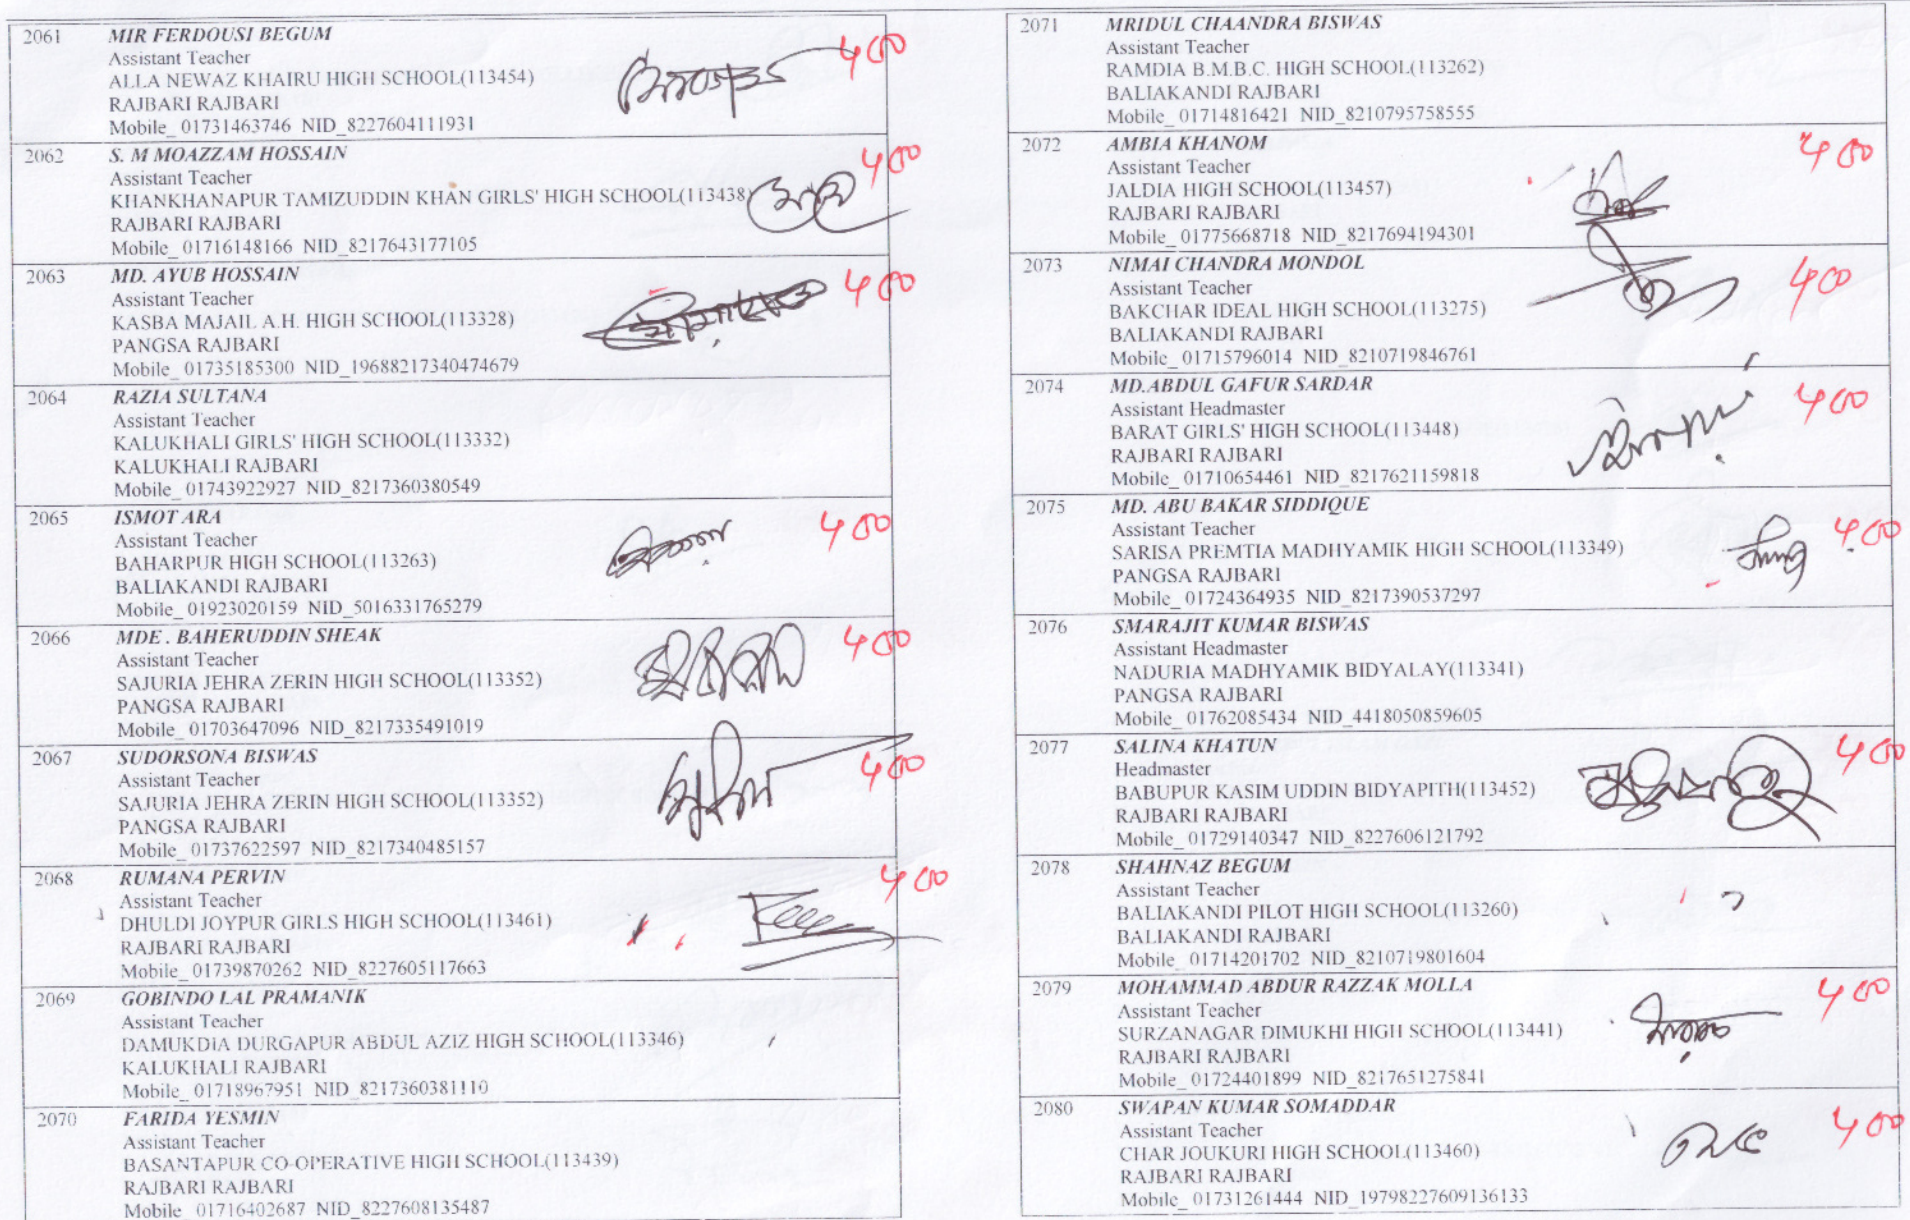 2061 MIR FERDOUSI BEGUM
Assistant Teacher
ALLA NEWAZ KHAIRU HIGH SCHOOL(113454)
RAJBARI RAJBARI
Mobile_ 01731463746 NID_8227604111931
400
2062 S. M MOAZZAM HOSSAIN
Assistant Teacher
KHANKHANAPUR TAMIZUDDIN KHAN GIRLS' HIGH SCHOOL(113438)
RAJBARI RAJBARI
Mobile_ 01716148166 NID_8217643177105
400
2063 MD. AYUB HOSSAIN
Assistant Teacher
KASBA MAJAIL A.H. HIGH SCHOOL(113328)
PANGSA RAJBARI
Mobile_ 01735185300 NID_19688217340474679
400
2064 RAZIA SULTANA
Assistant Teacher
KALUKHALI GIRLS' HIGH SCHOOL(113332)
KALUKHALI RAJBARI
Mobile_ 01743922927 NID_8217360380549
2065 ISMOT ARA
Assistant Teacher
BAHARPUR HIGH SCHOOL(113263)
BALIAKANDI RAJBARI
Mobile_ 01923020159 NID_5016331765279
400
2066 MDE . BAHERUDDIN SHEAK
Assistant Teacher
SAJURIA JEHRA ZERIN HIGH SCHOOL(113352)
PANGSA RAJBARI
Mobile_ 01703647096 NID_8217335491019
400
2067 SUDORSONA BISWAS
Assistant Teacher
SAJURIA JEHRA ZERIN HIGH SCHOOL(113352)
PANGSA RAJBARI
Mobile_ 01737622597 NID_8217340485157
400
2068 RUMANA PERVIN
Assistant Teacher
DHULDI JOYPUR GIRLS HIGH SCHOOL(113461)
RAJBARI RAJBARI
Mobile_ 01739870262 NID_8227605117663
400
2069 GOBINDO LAL PRAMANIK
Assistant Teacher
DAMUKDIA DURGAPUR ABDUL AZIZ HIGH SCHOOL(113346)
KALUKHALI RAJBARI
Mobile_ 01718967951 NID_8217360381110
2070 FARIDA YESMIN
Assistant Teacher
BASANTAPUR CO-OPERATIVE HIGH SCHOOL(113439)
RAJBARI RAJBARI
Mobile_ 01716402687 NID_8227608135487
2071 MRIDUL CHAANDRA BISWAS
Assistant Teacher
RAMDIA B.M.B.C. HIGH SCHOOL(113262)
BALIAKANDI RAJBARI
Mobile_ 01714816421 NID_8210795758555
2072 AMBIA KHANOM
Assistant Teacher
JALDIA HIGH SCHOOL(113457)
RAJBARI RAJBARI
Mobile_ 01775668718 NID_8217694194301
400
2073 NIMAI CHANDRA MONDOL
Assistant Teacher
BAKCHAR IDEAL HIGH SCHOOL(113275)
BALIAKANDI RAJBARI
Mobile_ 01715796014 NID_8210719846761
400
2074 MD.ABDUL GAFUR SARDAR
Assistant Headmaster
BARAT GIRLS' HIGH SCHOOL(113448)
RAJBARI RAJBARI
Mobile_ 01710654461 NID_8217621159818
400
2075 MD. ABU BAKAR SIDDIQUE
Assistant Teacher
SARISA PREMTIA MADHYAMIK HIGH SCHOOL(113349)
PANGSA RAJBARI
Mobile_ 01724364935 NID_8217390537297
400
2076 SMARAJIT KUMAR BISWAS
Assistant Headmaster
NADURIA MADHYAMIK BIDYALAY(113341)
PANGSA RAJBARI
Mobile_ 01762085434 NID_4418050859605
2077 SALINA KHATUN
Headmaster
BABUPUR KASIM UDDIN BIDYAPITH(113452)
RAJBARI RAJBARI
Mobile_ 01729140347 NID_8227606121792
400
2078 SHAHNAZ BEGUM
Assistant Teacher
BALIAKANDI PILOT HIGH SCHOOL(113260)
BALIAKANDI RAJBARI
Mobile_ 01714201702 NID_8210719801604
2079 MOHAMMAD ABDUR RAZZAK MOLLA
Assistant Teacher
SURZANAGAR DIMUKHI HIGH SCHOOL(113441)
RAJBARI RAJBARI
Mobile_ 01724401899 NID_8217651275841
400
2080 SWAPAN KUMAR SOMADDAR
Assistant Teacher
CHAR JOUKURI HIGH SCHOOL(113460)
RAJBARI RAJBARI
Mobile_ 01731261444 NID_19798227609136133
400